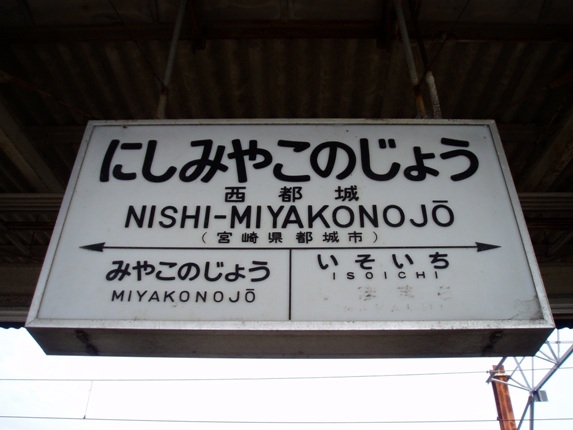 にしみやこのじょう
西都城
NISHI-MIYAKONOJŌ
(宮崎県都城市)
みやこのじょう
MIYAKONOJŌ
いそいち
ISOICHI